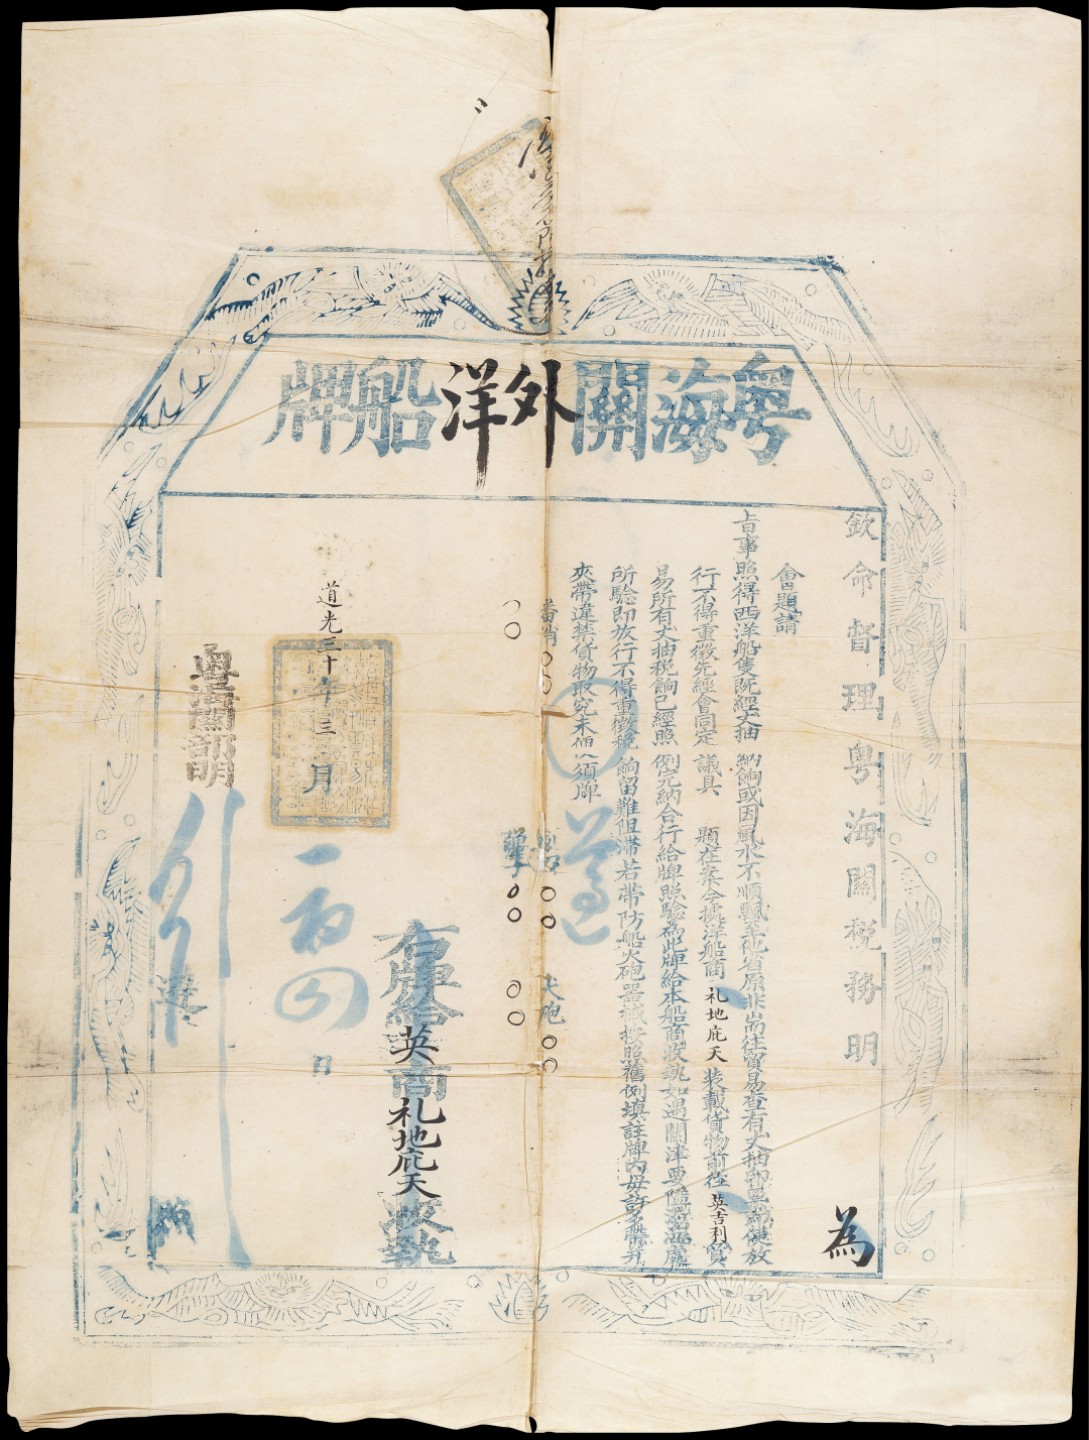 粤海關外洋船牌
欽命督理粤海關税務明
為
會題請
旨事照得西洋船隻既經丈抽納餉或因風水不順飄至他省原非常往貿易查有丈抽印票即便放
行不得重徵先經會同定議具題在案今據洋船商札地庇天装載貨物前往英吉利貿
易所有丈抽税餉已經照例完納合行給牌照驗為此牌給本船商收執如遇關津要隘沿海處
所驗即放行不得重徵税餉留難阻滯若帶防船火砲器械按照舊例填註牌內毋許多帶并
夾帶違禁貨物取究未便須牌
番梢〇〇 〇〇 大砲〇〇
〇〇 〇〇 〇〇
遵
右牌給英商札地庇天收執
道光三十年三月一初四日
粤海關部明